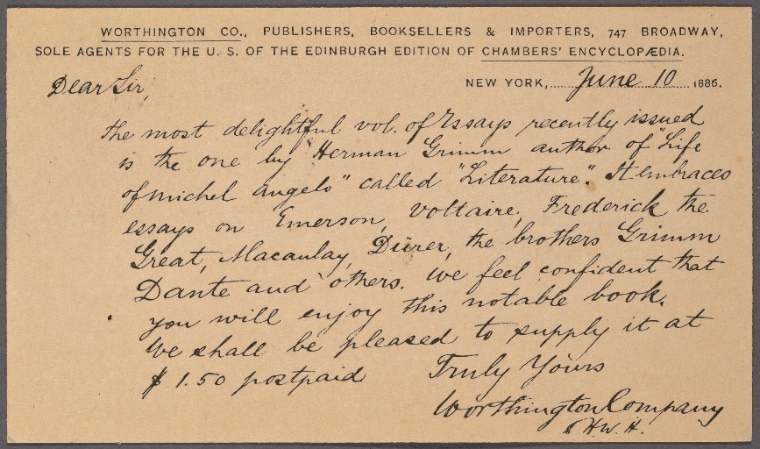 WORTHINGTON CO., PUBLISHERS, BOOKSELLERS & IMPORTERS, 747 BROADWAY,
SOLE AGENTS FOR THE U. S. OF THE EDINBURGH EDITION OF CHAMBERS' ENCYCLOPÆDIA.
NEW YORK, June 10 1886.
Dear Sir,
The most delightful vol. of Essays recently issued
is the one by Herman Grimm author of "Life
of Michel Angelo" called "Literature". It embraces
essays on Emerson, Voltaire, Frederick the
Great, Macaulay, Dürer, the brothers Grimm
Dante and others. We feel confident that
you will enjoy this notable book.
We shall be pleased to supply it at
$1.50 postpaid
Truly Yours
Worthington Company
H.W.H.